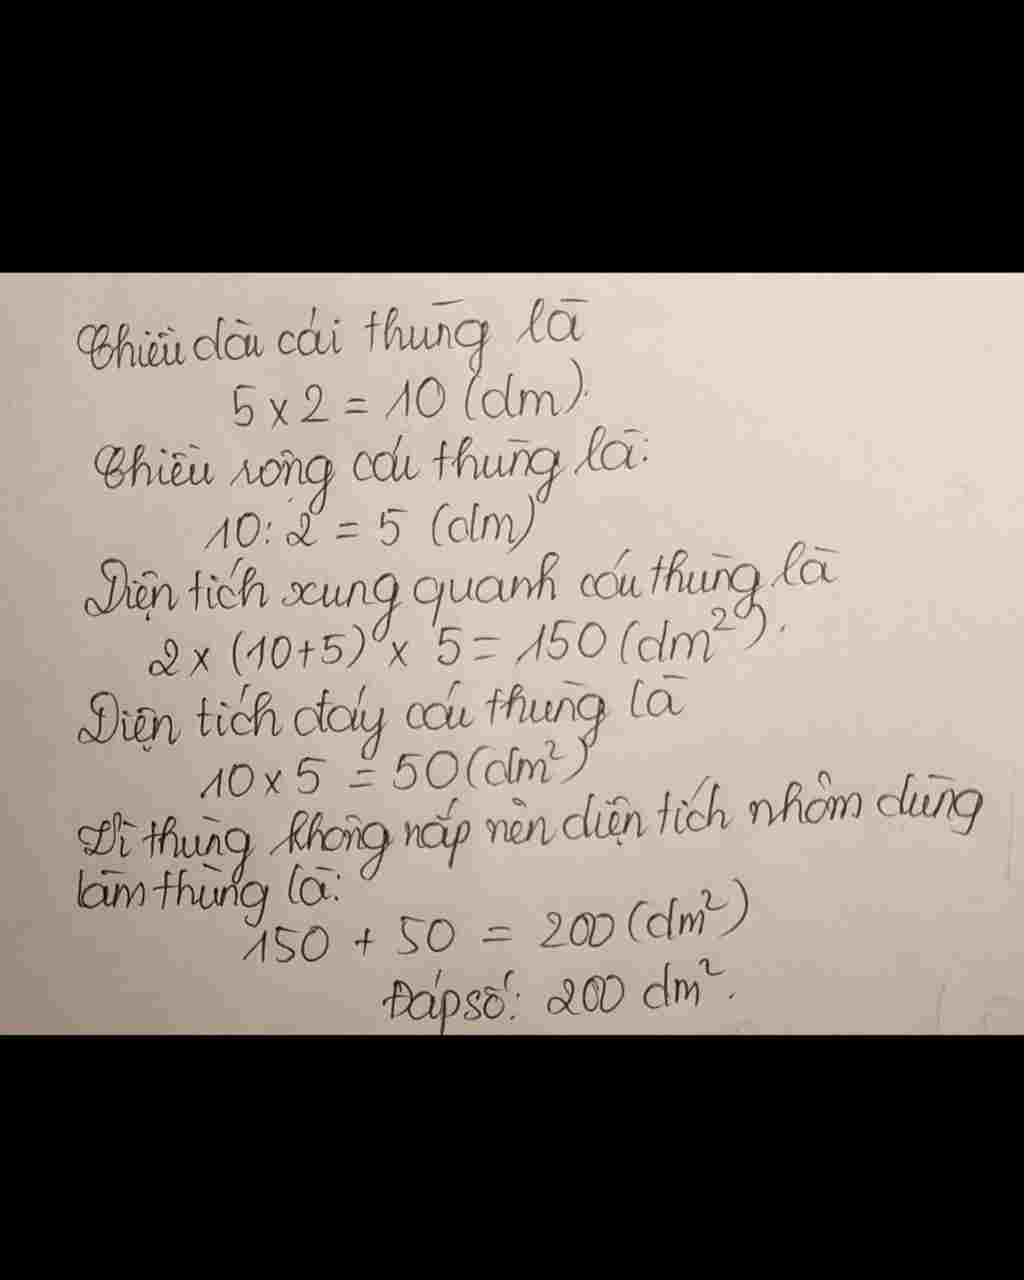 Chiều dài cái thùng là
5 x 2 = 10 (dm).
Chiều rộng cái thùng là:
10 : 2 = 5 (dm)
Diện tích xung quanh cái thùng là
2 x (10+5) x 5 = 150 (dm²).
Diện tích đáy cái thùng là
10 x 5 = 50 (dm²)
Vì thùng không nắp nên diện tích nhôm dùng
làm thùng là:
150 + 50 = 200 (dm²)
Đáp số: 200 dm².